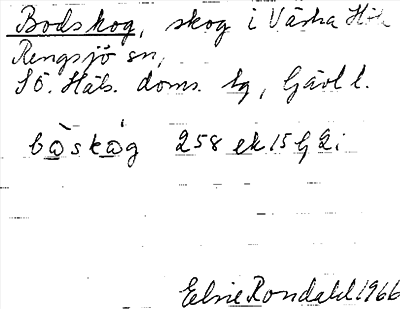 Bodskog, skog i Västra Höle
Rengsjö sn,
Sö. Häls. doms. sg, Gävl l.
bòskóg 258 ek 15 G 2i
Elsie Rondahl 1966